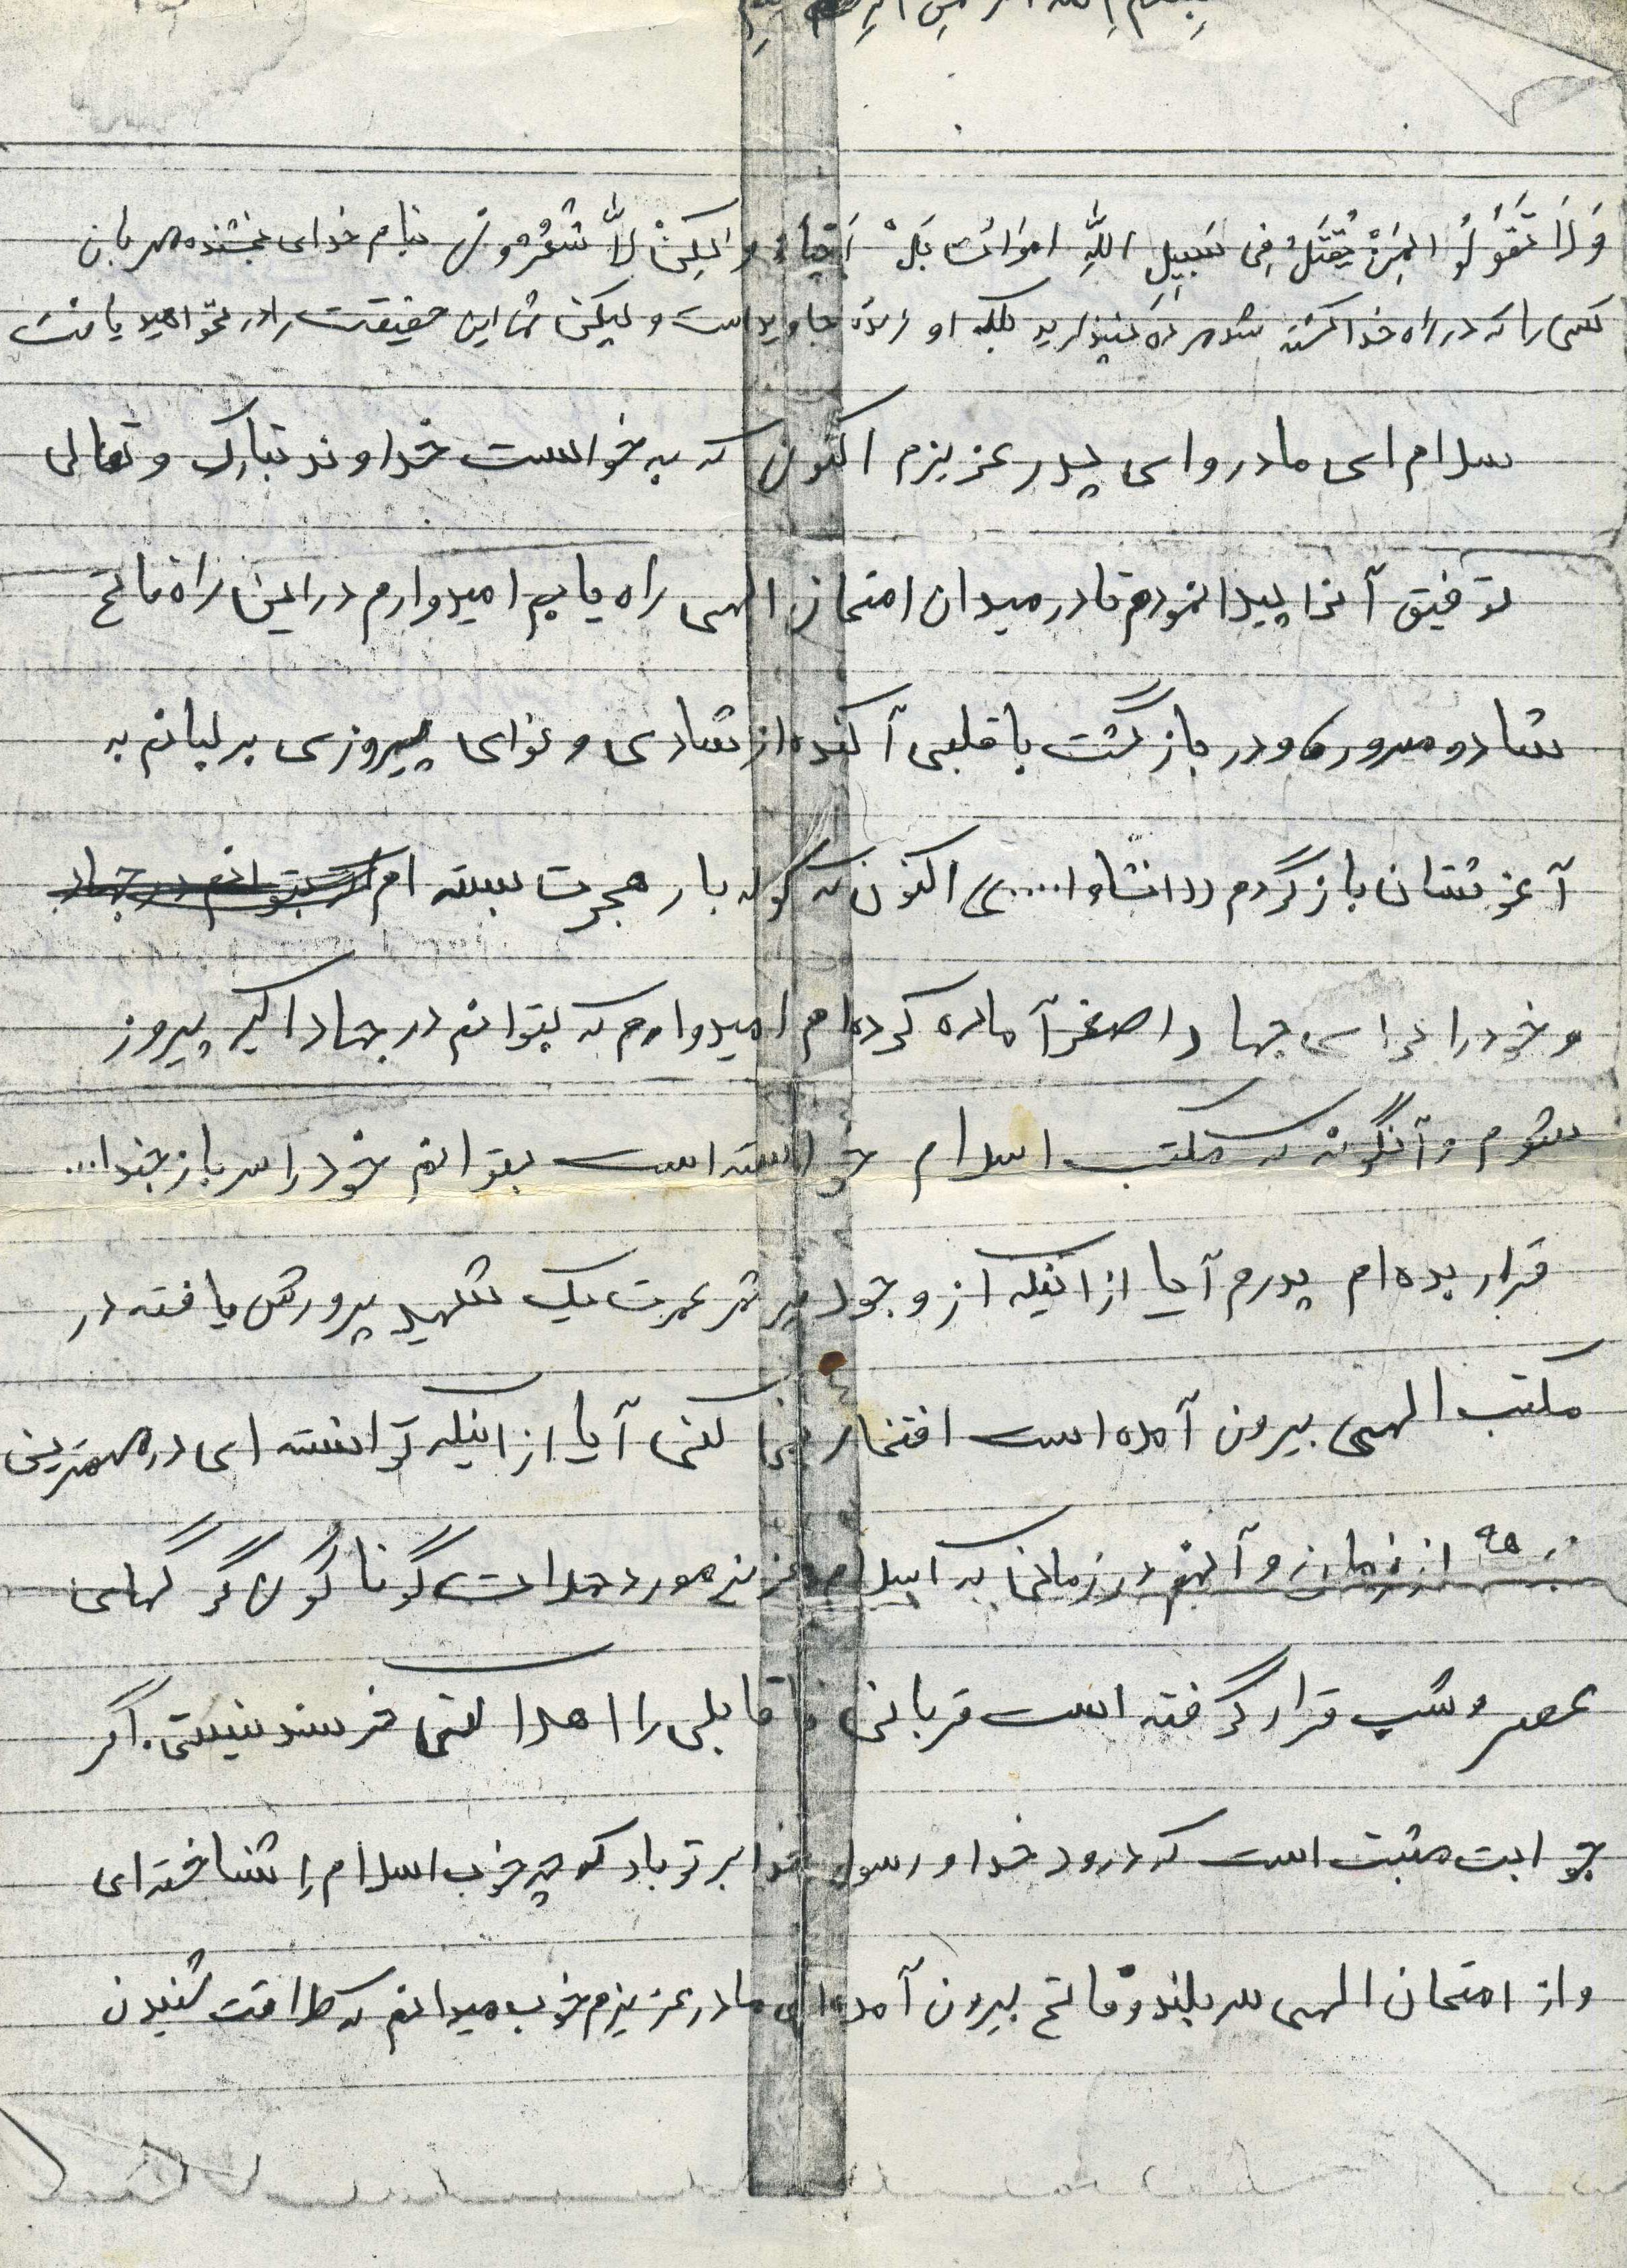 بِسْمِ اللهِ الرَّحْمنِ الرَّحِیمِ
وَلَا تَقُولُوا لِمَنْ یُقْتَلُ فِی سَبِیلِ اللَّهِ اموات بَلْ اَحیاءٌ وَ لکِنْ لاَّ تَشْعُرُونَ بنام خدای بخشنده مهربان
کسی را که در راه خدا کشته شد مرده نپندارید بلکه او زنده جاوید است و لیکن شما این حقیقت را در نخواهید یافت
سلام ای مادر و ای پدر عزیزم اکنون که به خواست خداوند تبارک و تعالی
توفیق آنرا پیدا نمودم تا در میدان امتحان الهی راه یابم امیدوارم در این راه فاتح
شاد و مسرور و در بازگشت با قلبی آکنده از شادی و نوای پیروزی بر لبانم به
آغوشتان بازگردم ((انشاء ا....)) اکنون که کوله بار هجرت بسته ام که بتوانم در جهاد
و خود را برای جهاد اصغر آماده کرده ام امیدوارم که بتوانم در جهاد اکبر پیروز
شوم و آنگونه که مکتب اسلام خواسته است بتوانم خود را سرباز خدا...
قرار بده ام پدرم آیا از اینکه از وجود پر ثمرت یک شهید پرورش یافته در
مکتب الهی بیرون آمده است افتخار نمی کنی آیا از اینکه توانسته ای در مهمترین
از زمان و آنهم در زمانی که اسلام عزیز مورد حملات گوناگون گرگهای
عصر و شب قرار گرفته است قربانی نا قابلی را اهدا کنی خرسند نیستی. اگر
جوابت مثبت است که درود خدا و رسول خدا بر تو باد که چه خوب اسلام را شناخته ای
و از امتحان الهی سربلند و فاتح بیرون آمده ای مادر عزیزم خوب میدانم که طاقت شنیدن